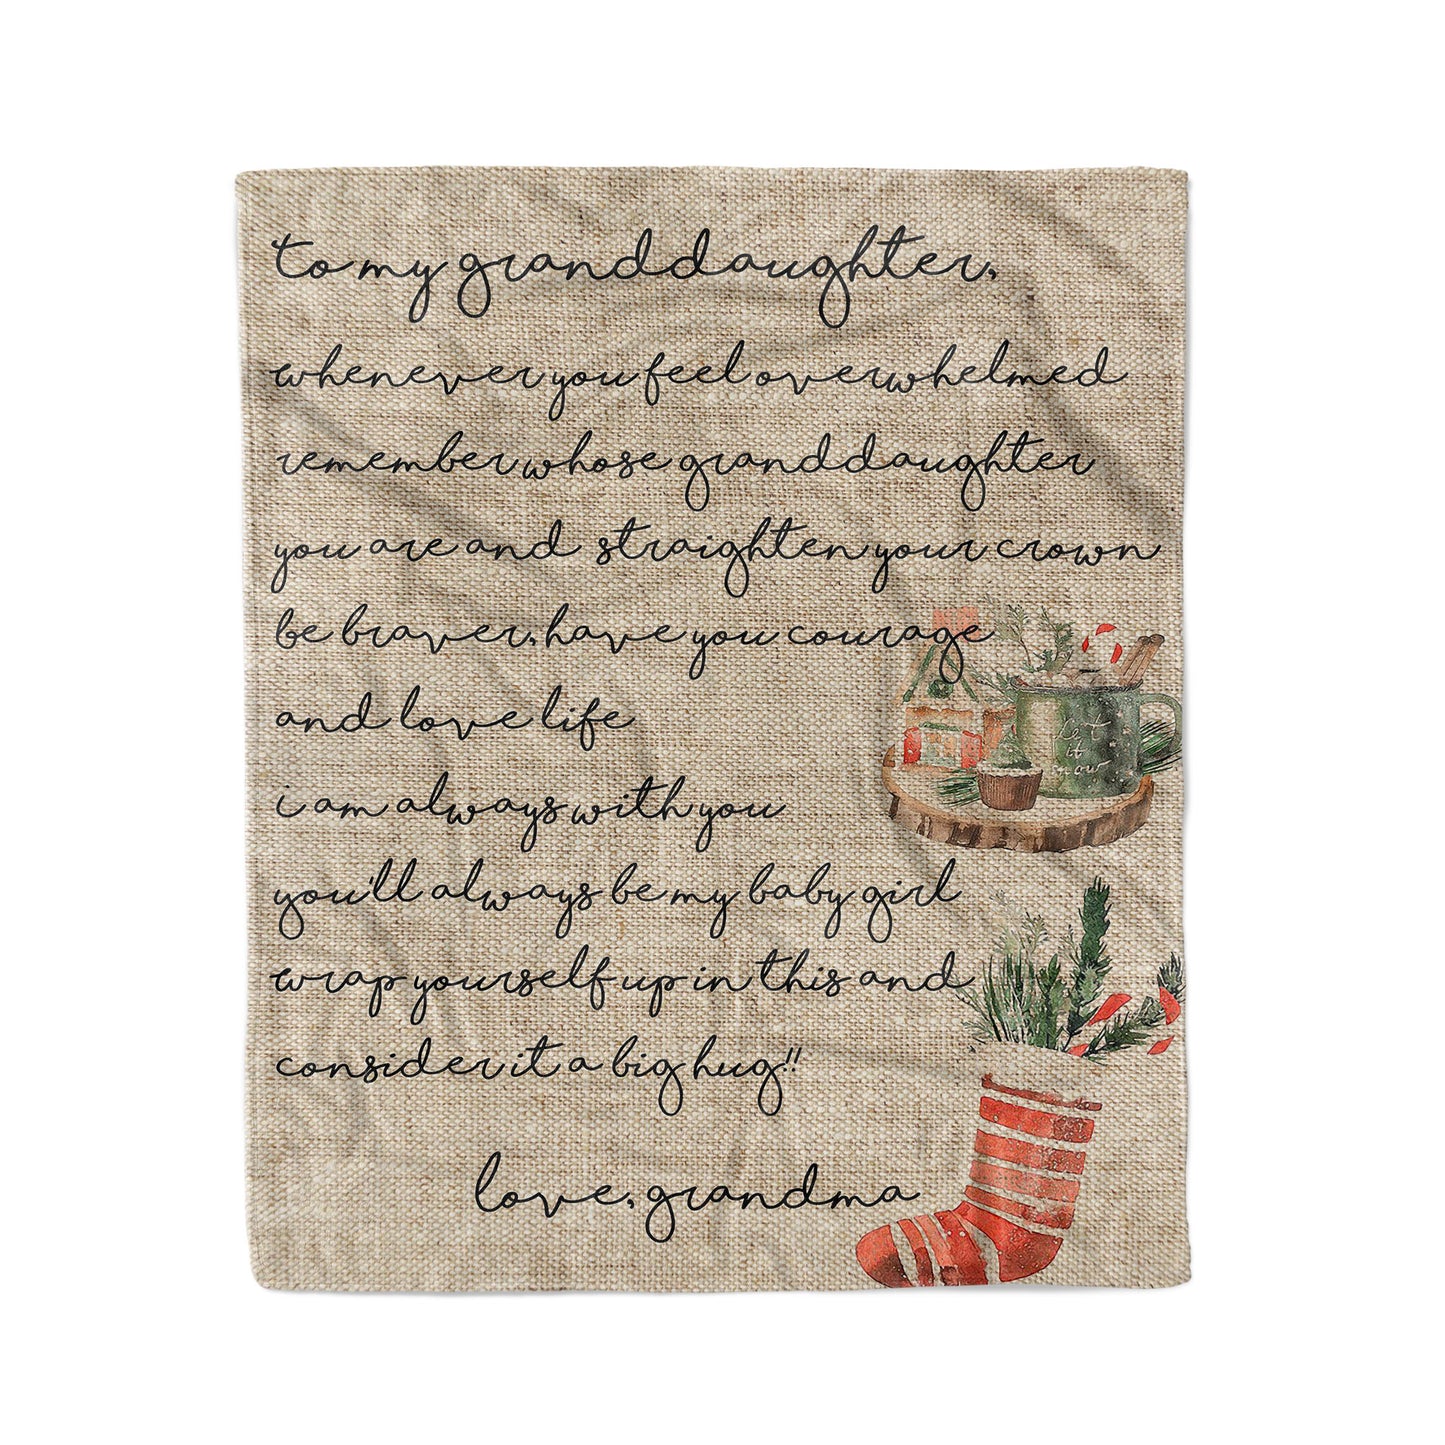 to my granddaughter,
whenever you feel overwhelmed
remember whose granddaughter
you are and straighten your crown
be braver, have you courage
and love life
i am always with you
you'll always be my baby girl
wrap yourself up in this and
consider it a big hug!!
love, grandma
let
it
snow